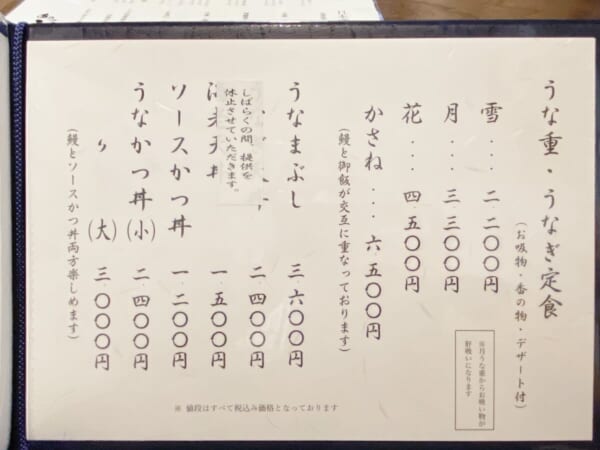 うな重・うなぎ定食
(お吸物・香の物・デザート付)
雪... 二二〇〇円
月... 三三〇〇円
花... 四五〇〇円
かさね.... 六五〇〇円
(鰻と御飯が交互に重なっております)
※月うな重からお吸い物が
肝吸いになります
うなまぶし 三六〇〇円
二四〇〇円
しばらくの間、提供を
休止させていただきます。
天丼 一五〇〇円
ソースかつ丼 一二〇〇円
うなかつ丼(小) 二四〇〇円
〃 (大) 三〇〇〇円
(鰻とソースかつ丼両方楽しめます)
※ 値段はすべて税込み価格となっております